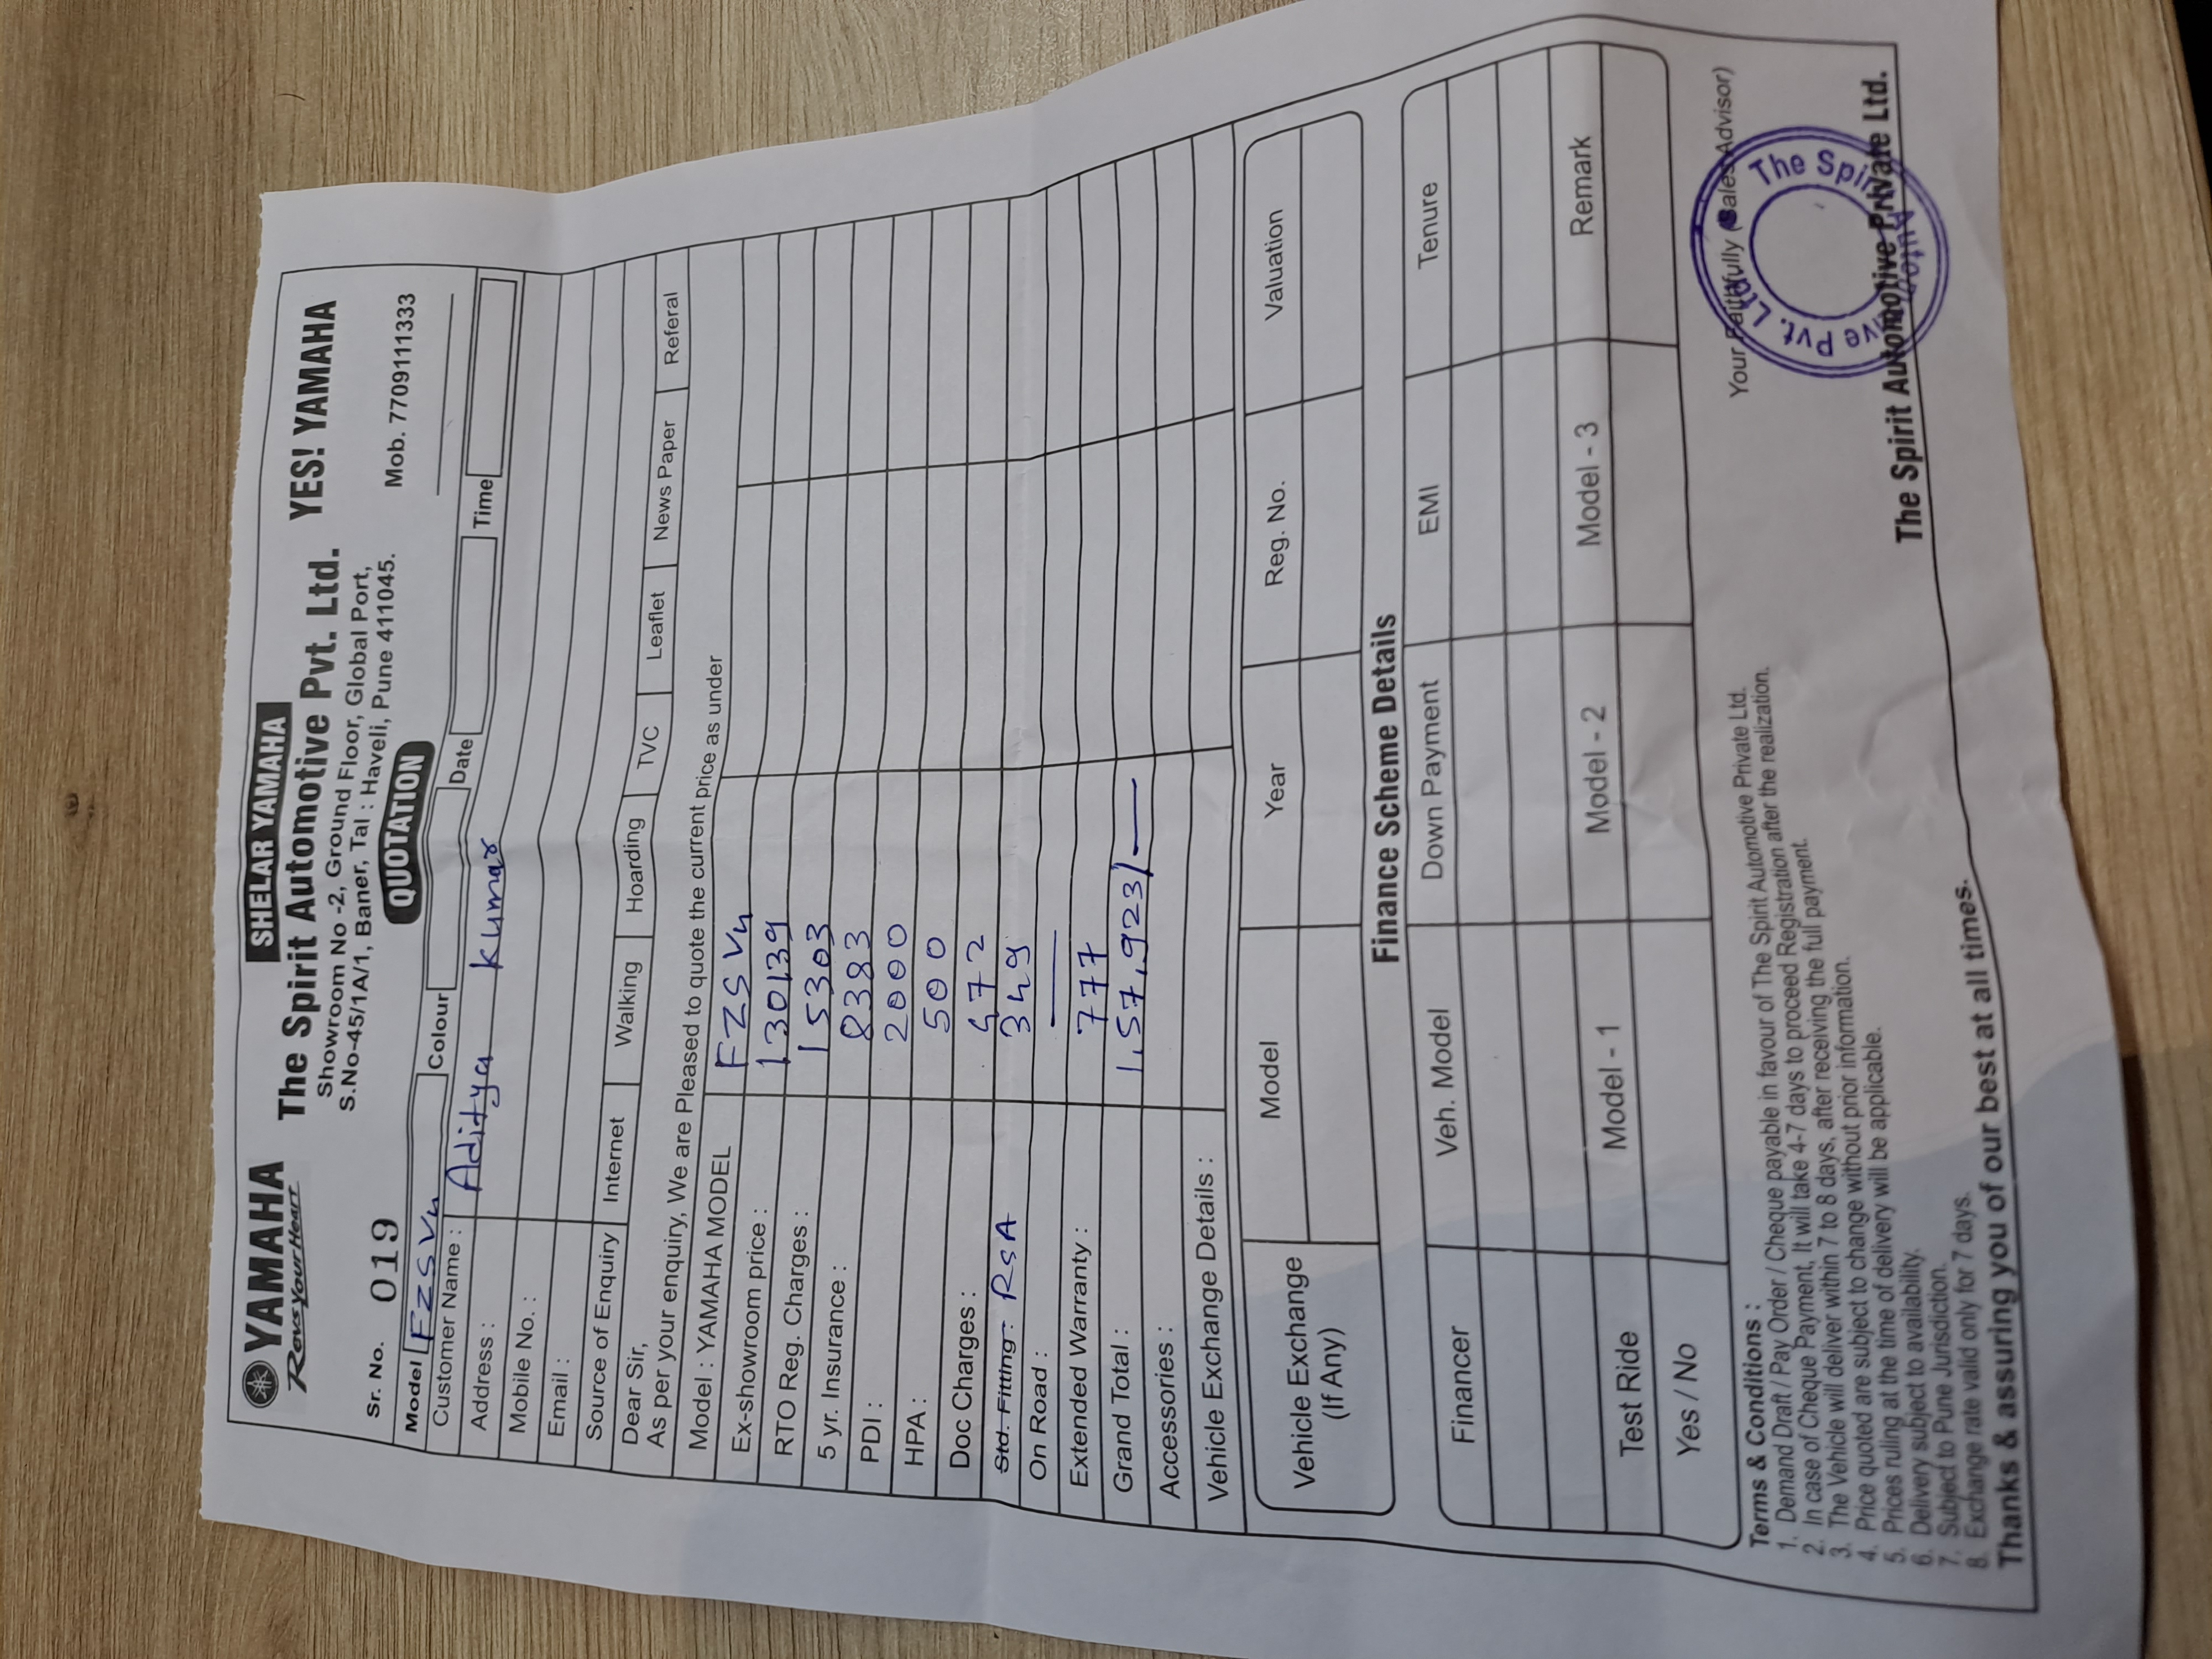 YAMAHA
Revs Your Heart
SHELAR YAMAHA
The Spirit Automotive Pvt. Ltd.
YES! YAMAHA
Showroom No -2, Ground Floor, Global Port,
S.No-45/1A/1, Baner, Tal : Haveli, Pune 411045.
Mob. 7709111333
Sr. No. 019
QUOTATION
Model FZS V4 Colour Date Time
Customer Name : Aditya Kumar
Address :
Mobile No. :
Email :
Source of Enquiry Internet Walking Hoarding TVC Leaflet News Paper Referal
Dear Sir,
As per your enquiry, We are Pleased to quote the current price as under
Model : YAMAHA MODEL FZS V4
Ex-showroom price : 130139
RTO Reg. Charges : 15303
5 yr. Insurance : 8383
PDI : 2000
HPA : 500
Doc Charges : 472
Std. Fitting : RSA 349
On Road : —
Extended Warranty : 777
Grand Total : 1,57,923/—
Accessories :
Vehicle Exchange Details :
Vehicle Exchange
(If Any)
Model Year Reg. No. Valuation
Finance Scheme Details
Financer Veh. Model Down Payment EMI Tenure
Test Ride Model - 1 Model - 2 Model - 3 Remark
Yes / No
Terms & Conditions :
1. Demand Draft / Pay Order / Cheque payable in favour of The Spirit Automotive Private Ltd.
2. In case of Cheque Payment, It will take 4-7 days to proceed Registration after the realization.
3. The Vehicle will deliver within 7 to 8 days, after receiving the full payment.
4. Price quoted are subject to change without prior information.
5. Prices ruling at the time of delivery will be applicable.
6. Delivery subject to availability.
7. Subject to Pune Jurisdiction.
8. Exchange rate valid only for 7 days.
Thanks & assuring you of our best at all times.
Your Faithfully (Sales Advisor)
The Spirit Automotive Pvt. Ltd.
The Spirit Automotive Private Ltd.